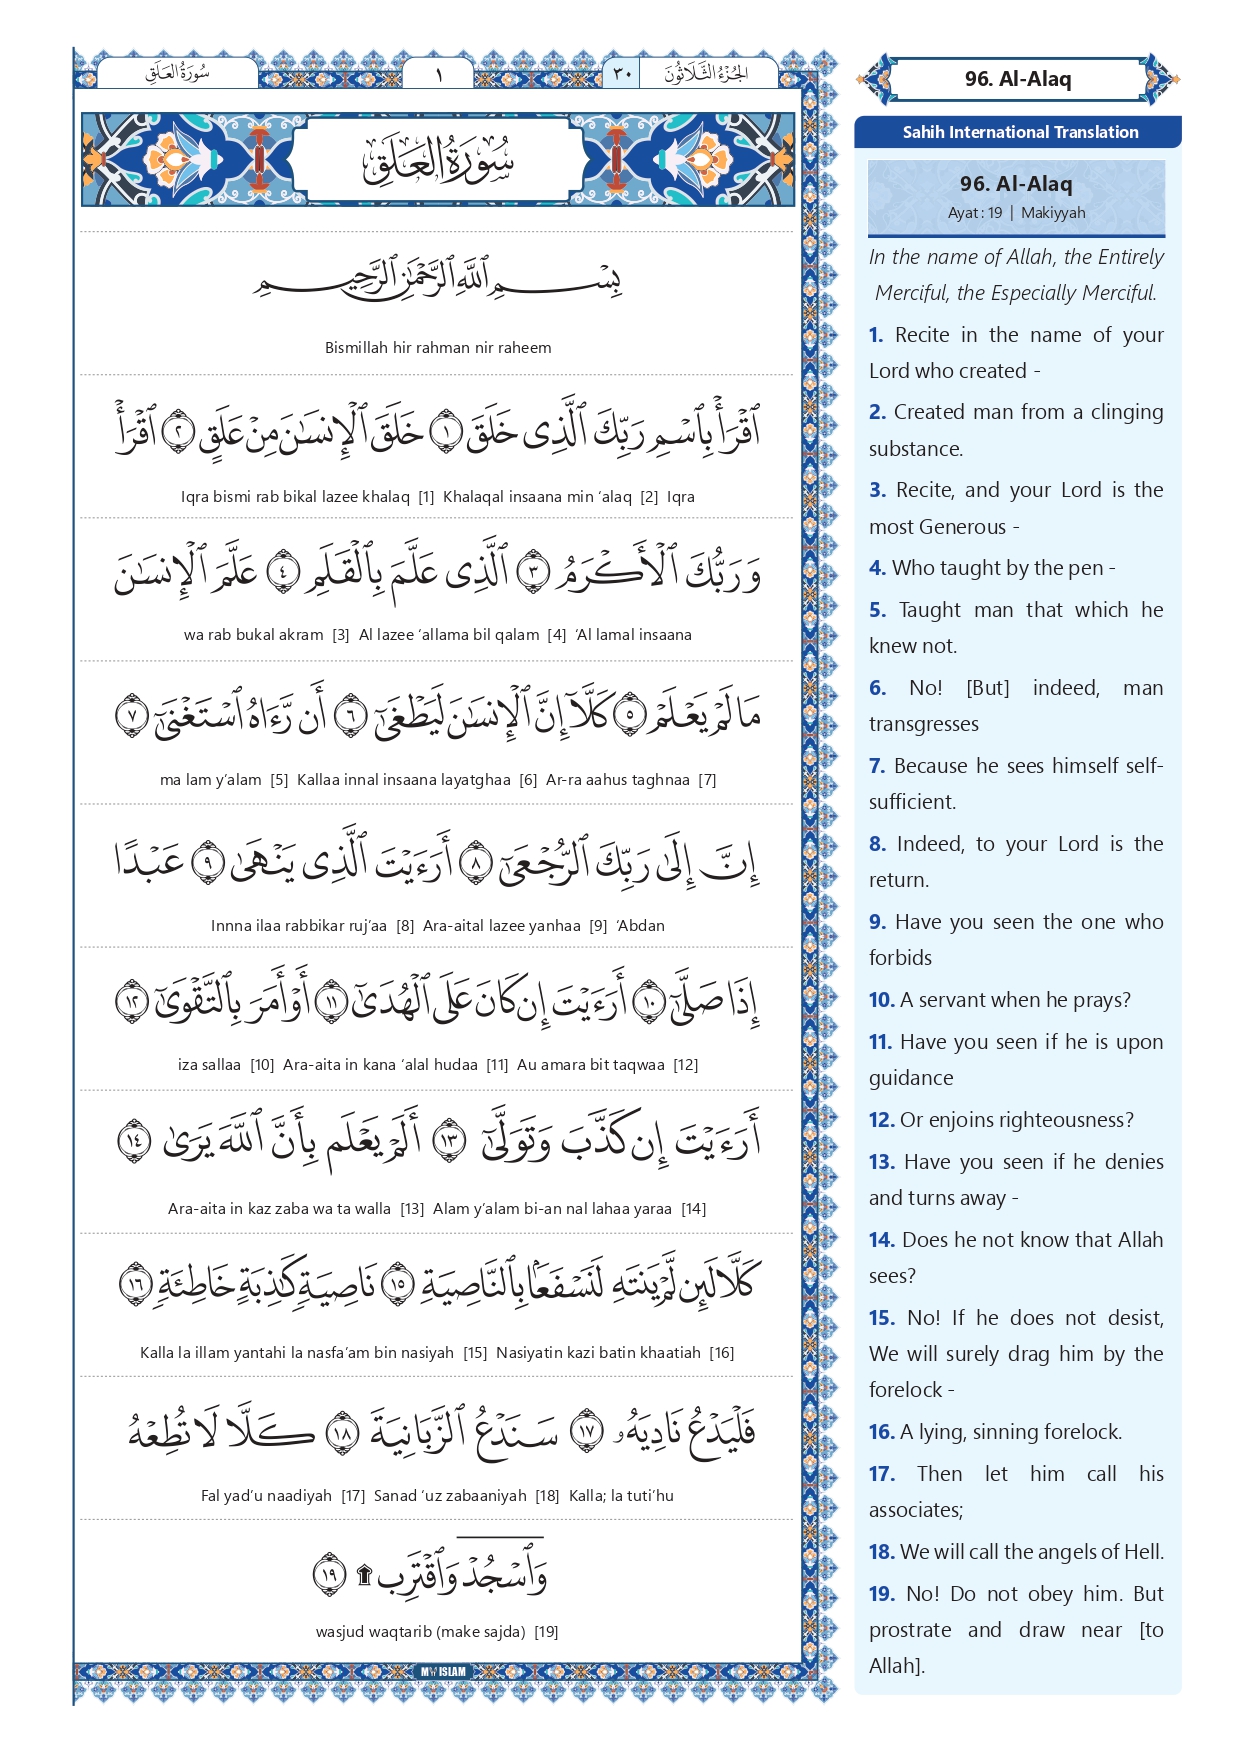 سُورَةُ العَلَقِ
١
٣٠
الجُزْءُ الثَّلَاثُونَ
سُورَةُ العَلَقِ
بِسْمِ ٱللَّهِ ٱلرَّحْمَٰنِ ٱلرَّحِيمِ
Bismillah hir rahman nir raheem
ٱقْرَأْ بِٱسْمِ رَبِّكَ ٱلَّذِى خَلَقَ ١ خَلَقَ ٱلْإِنسَٰنَ مِنْ عَلَقٍ ٢ ٱقْرَأْ
Iqra bismi rab bikal lazee khalaq [1] Khalaqal insaana min ‘alaq [2] Iqra
وَرَبُّكَ ٱلْأَكْرَمُ ٣ ٱلَّذِى عَلَّمَ بِٱلْقَلَمِ ٤ عَلَّمَ ٱلْإِنسَٰنَ
wa rab bukal akram [3] Al lazee ‘allama bil qalam [4] ‘Al lamal insaana
مَا لَمْ يَعْلَمْ ٥ كَلَّآ إِنَّ ٱلْإِنسَٰنَ لَيَطْغَىٰٓ ٦ أَن رَّءَاهُ ٱسْتَغْنَىٰٓ ٧
ma lam y’alam [5] Kallaa innal insaana layatghaa [6] Ar-ra aahus taghnaa [7]
إِنَّ إِلَىٰ رَبِّكَ ٱلرُّجْعَىٰٓ ٨ أَرَءَيْتَ ٱلَّذِى يَنْهَىٰ ٩ عَبْدًا
Innna ilaa rabbikar ruj’aa [8] Ara-aital lazee yanhaa [9] ‘Abdan
إِذَا صَلَّىٰٓ ١٠ أَرَءَيْتَ إِن كَانَ عَلَى ٱلْهُدَىٰٓ ١١ أَوْ أَمَرَ بِٱلتَّقْوَىٰٓ ١٢
iza sallaa [10] Ara-aita in kana ‘alal hudaa [11] Au amara bit taqwaa [12]
أَرَءَيْتَ إِن كَذَّبَ وَتَوَلَّىٰٓ ١٣ أَلَمْ يَعْلَم بِأَنَّ ٱللَّهَ يَرَىٰ ١٤
Ara-aita in kaz zaba wa ta walla [13] Alam y’alam bi-an nal lahaa yaraa [14]
كَلَّا لَئِن لَّمْ يَنتَهِ لَنَسْفَعًۢا بِٱلنَّاصِيَةِ ١٥ نَاصِيَةٍ كَٰذِبَةٍ خَاطِئَةٍ ١٦
Kalla la illam yantahi la nasfa’am bin nasiyah [15] Nasiyatin kazi batin khaatiah [16]
فَلْيَدْعُ نَادِيَهُۥ ١٧ سَنَدْعُ ٱلزَّبَانِيَةَ ١٨ كَلَّا لَا تُطِعْهُ
Fal yad’u naadiyah [17] Sanad ‘uz zabaaniyah [18] Kalla; la tuti’hu
وَٱسْجُدْ وَٱقْتَرِب ۩ ١٩
wasjud waqtarib (make sajda) [19]
MY ISLAM
96. Al-Alaq
Sahih International Translation
96. Al-Alaq
Ayat: 19 | Makiyyah
In the name of Allah, the Entirely
Merciful, the Especially Merciful.
1. Recite in the name of your
Lord who created -
2. Created man from a clinging
substance.
3. Recite, and your Lord is the
most Generous -
4. Who taught by the pen -
5. Taught man that which he
knew not.
6. No! [But] indeed, man
transgresses
7. Because he sees himself self-
sufficient.
8. Indeed, to your Lord is the
return.
9. Have you seen the one who
forbids
10. A servant when he prays?
11. Have you seen if he is upon
guidance
12. Or enjoins righteousness?
13. Have you seen if he denies
and turns away -
14. Does he not know that Allah
sees?
15. No! If he does not desist,
We will surely drag him by the
forelock -
16. A lying, sinning forelock.
17. Then let him call his
associates;
18. We will call the angels of Hell.
19. No! Do not obey him. But
prostrate and draw near [to
Allah].